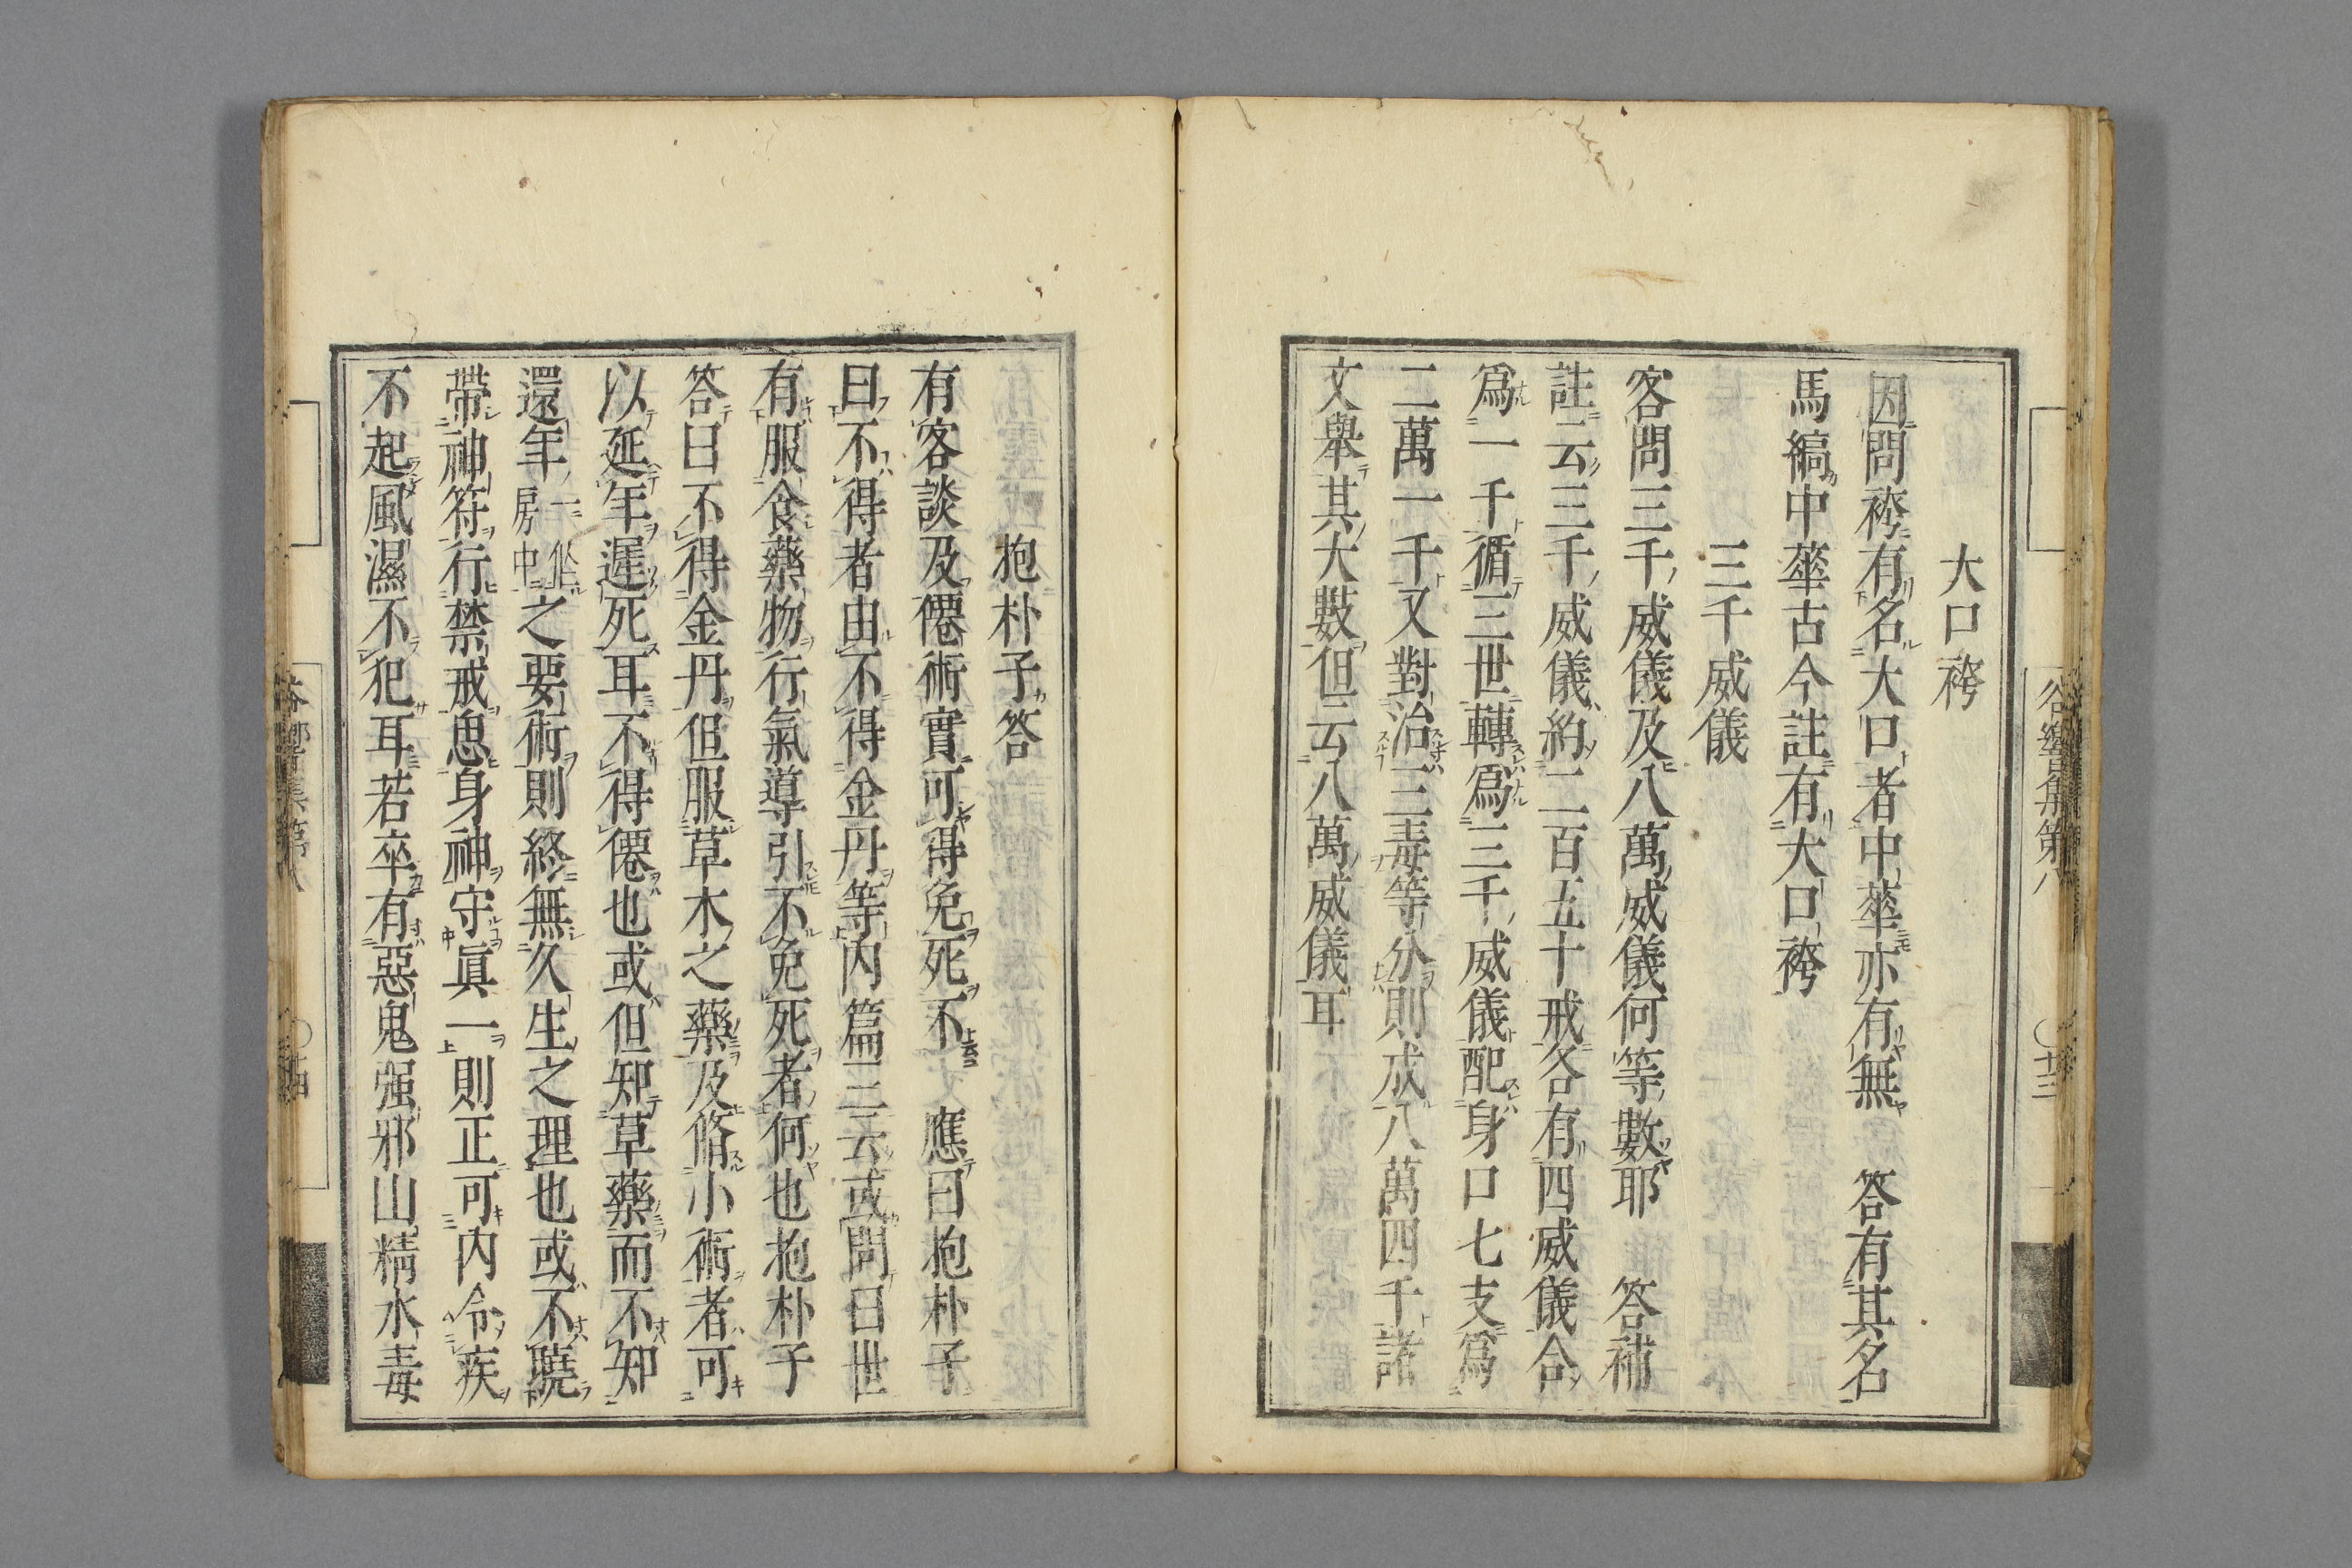 大口袴
因問袴有名大口者中華亦有無　答有其名
馬縞中華古今註有大口袴
三千威儀
客問三千威儀及八萬威儀何等數耶　答補
註云三千威儀約二百五十戒各有四威儀合
爲一千循三世轉爲三千威儀配身口七支爲
二萬一千又對治三毒等分則成八萬四千諸
文舉其大數但云八萬威儀耳
谷響集第八　〇廿三
抱朴子答
有客談及僊術實可得免死不　應曰抱朴子
曰不得者由不得金丹等内篇三云或問曰世
有服食藥物行氣導引不免死者何也抱朴子
答曰不得金丹但服草木之藥及脩小術者可
以延年遲死耳不得僊也或但知草藥而不知
還年一作房中之要術則終無久生之理也或不曉
帶神符行禁戒思身神守眞一則正可内令疾
不起風濕不犯耳若卒有惡鬼强邪山精水毒
谷響集第八